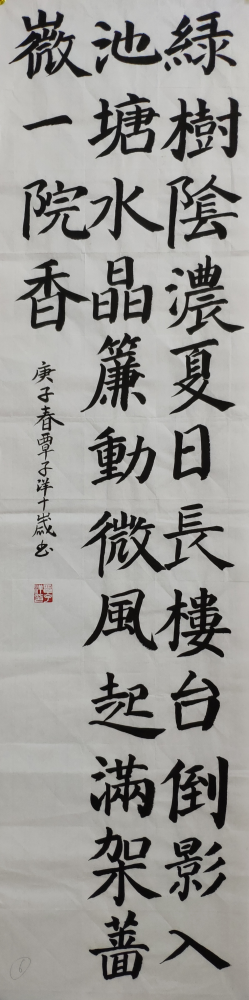 綠樹陰濃夏日長樓台倒影入
池塘水晶簾動微風起滿架薔
薇一院香
庚子春覃子洋十歲书